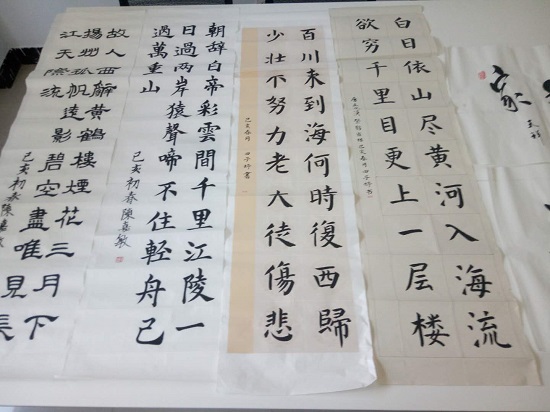 家
白日依山尽黄河入海流
欲穷千里目更上一层楼
百川来到海何時復西歸
少壮不努力老大徒傷悲
己亥春月
朝辞白帝彩雲間千里江陵一
日過两岸猿聲啼不住輕舟已
過萬重山
己亥初春陳嘉敏
故人西辭黄鶴樓煙花三月下
揚州孤帆遠影碧空盡唯見長
江天際流
己亥初春陳嘉敏